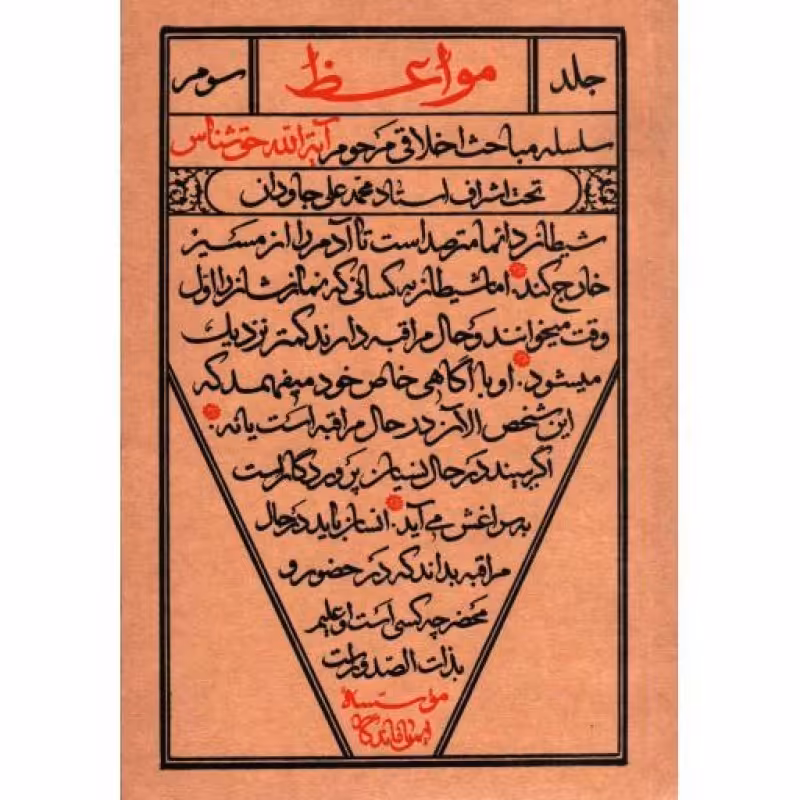 جلد مواعظ سوم
سلسله مباحث اخلاقی مرحوم آیةالله حق‌شناس
تحت اشراف استاد محمدعلی جاودان
شیطان دائما مترصد است تا آدم را از مسیر
خارج کند. اما شیطان به کسانی که نمازشان را اول
وقت میخوانند و حال مراقبه دارند کمتر نزدیک
میشود. او با آگاهی خاص خود میفهمد که
این شخص الآن در حال مراقبه است یا نه.
اگر ببیند در حال نسیان پروردگار است
به سراغش می‌آید. انسان باید در حال
مراقبه بداند که در حضور و
محضر چه کسی است او علیم
بذات الصدور است
مؤسسه